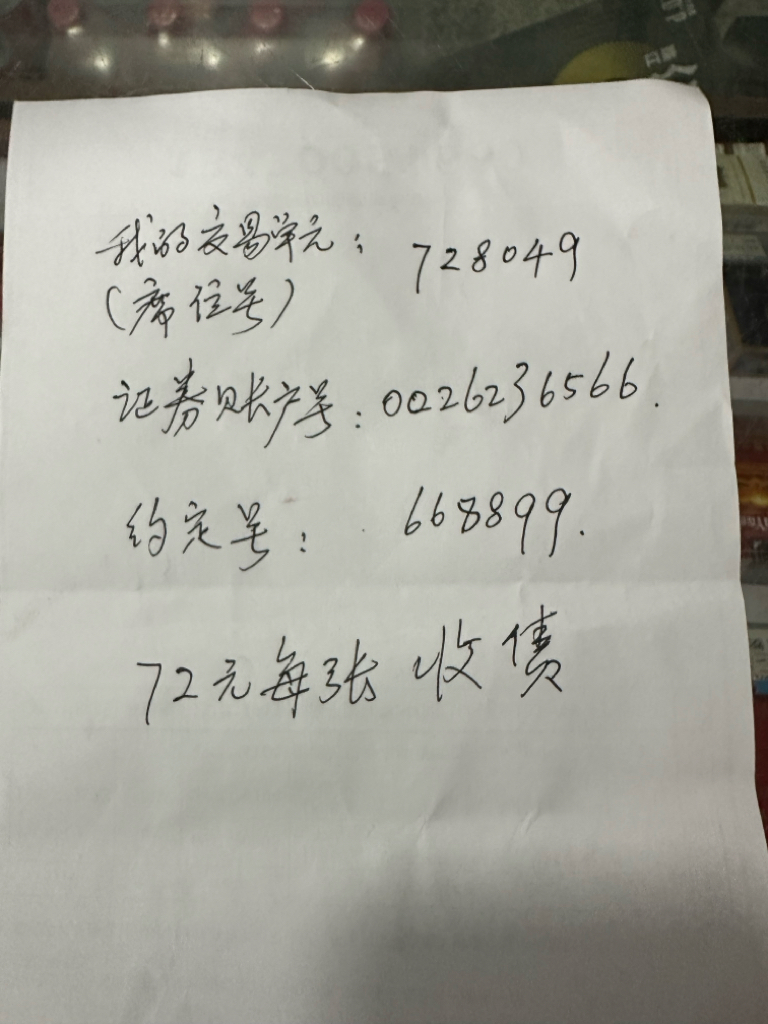 我的交易单元： 728049
（席位号）
证券账户号：0026236566.
约定号： 668899.
72元每张 收债